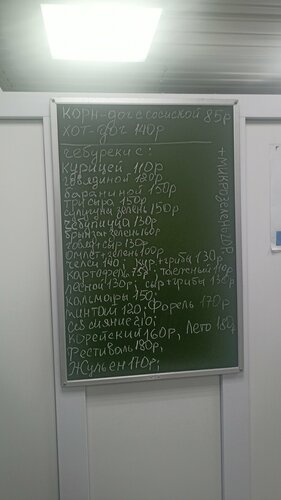 КОРН-дог с сосиской 85р
ХОТ-дог 140р
чебуреки с:
курицей 110р
говядиной 120р
бараниной 150р
три сыра 150р
зелень 150р
чебупицца 130р
брынза+зелень 160р
сыр 130р
омлет+зелень 100р
140; кур+грибы 130р
картофель 75р, 110р
лесной 130р; сыр+грибы 130р
кальмары 150;
минтай 120, Форель 170р
сияние 210,
Корейский 160р, Лето 180р
Фестиваль 180р,
Жульен 170р;
+микрозелень 20р